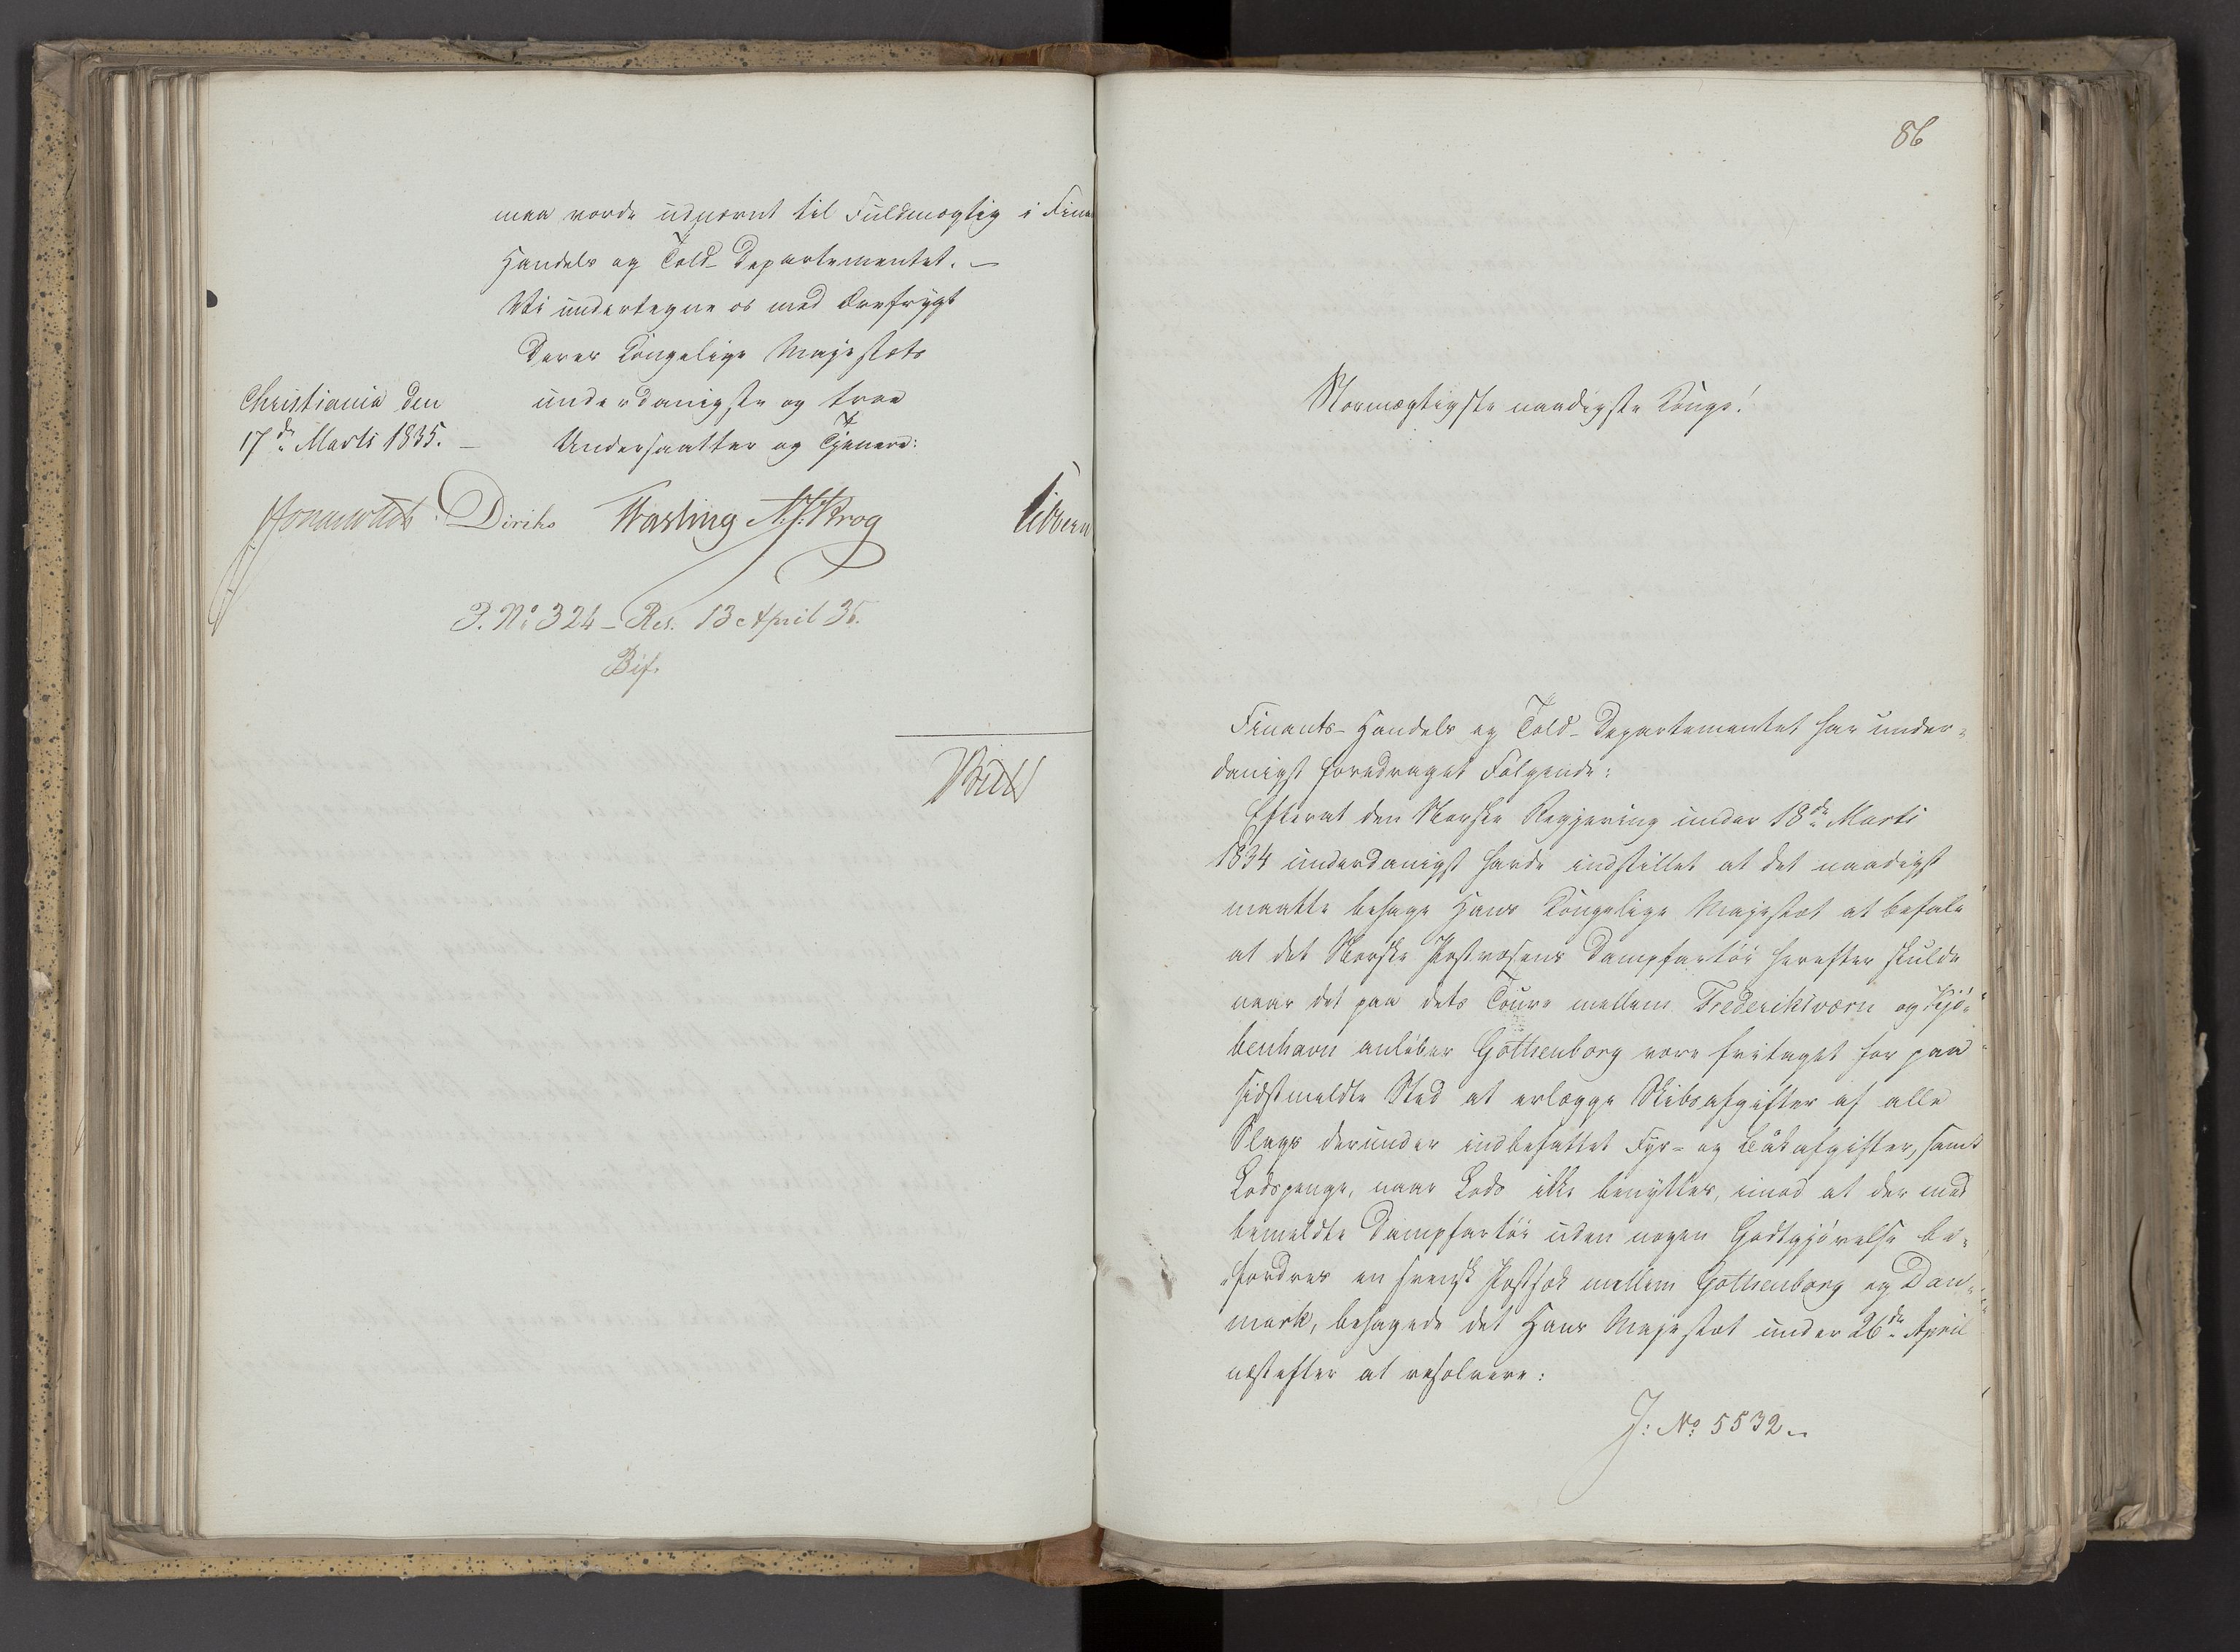 maa vorde udnævnt til Fuldmægtig i Finan
Handels og Told-Departementet. –
Vi undertegne os med Ærefrygt
Deres Kongelige Majestæts
Christiania den
17de Marts 1835. –
underdanigste og troe
Undersaatter og Tjenere:
Diriks Fasting N. J. Krog Sibbern
P. No 324 – Res. 13 April 35.
Bif.
86
Stormægtigste naadigste Konge!
Finants- Handels og Told-Departementet har under-
danigst foredraget Følgende:
Efterat den Norske Regjering under 18de Marts
1834 underdanigst havde indstillet at det naadigst
maatte behage Hans Kongelige Majestæt at befale
at det Norske Postvæsens Dampfartöi herefter skulde
naar det paa dets Toure mellem Frederiksværn og Kjö-
benhavn anlöber Gothenborg være fritaget for paa
sidstmeldte Sted at erlægge Skibsafgifter af alle
Slags derunder indbefattet Fyr- og Båkafgifter, samt
Lodspenge, naar Lods ikke benyttes, imod at der med
bemeldte Dampfartöi uden nogen Godtgjörelse be-
fordres en svensk Postsæk mellem Gothenborg og Dan-
mark, behagede det Hans Majestæt under 26de April
næstefter at resolvere:
J: No 5532.